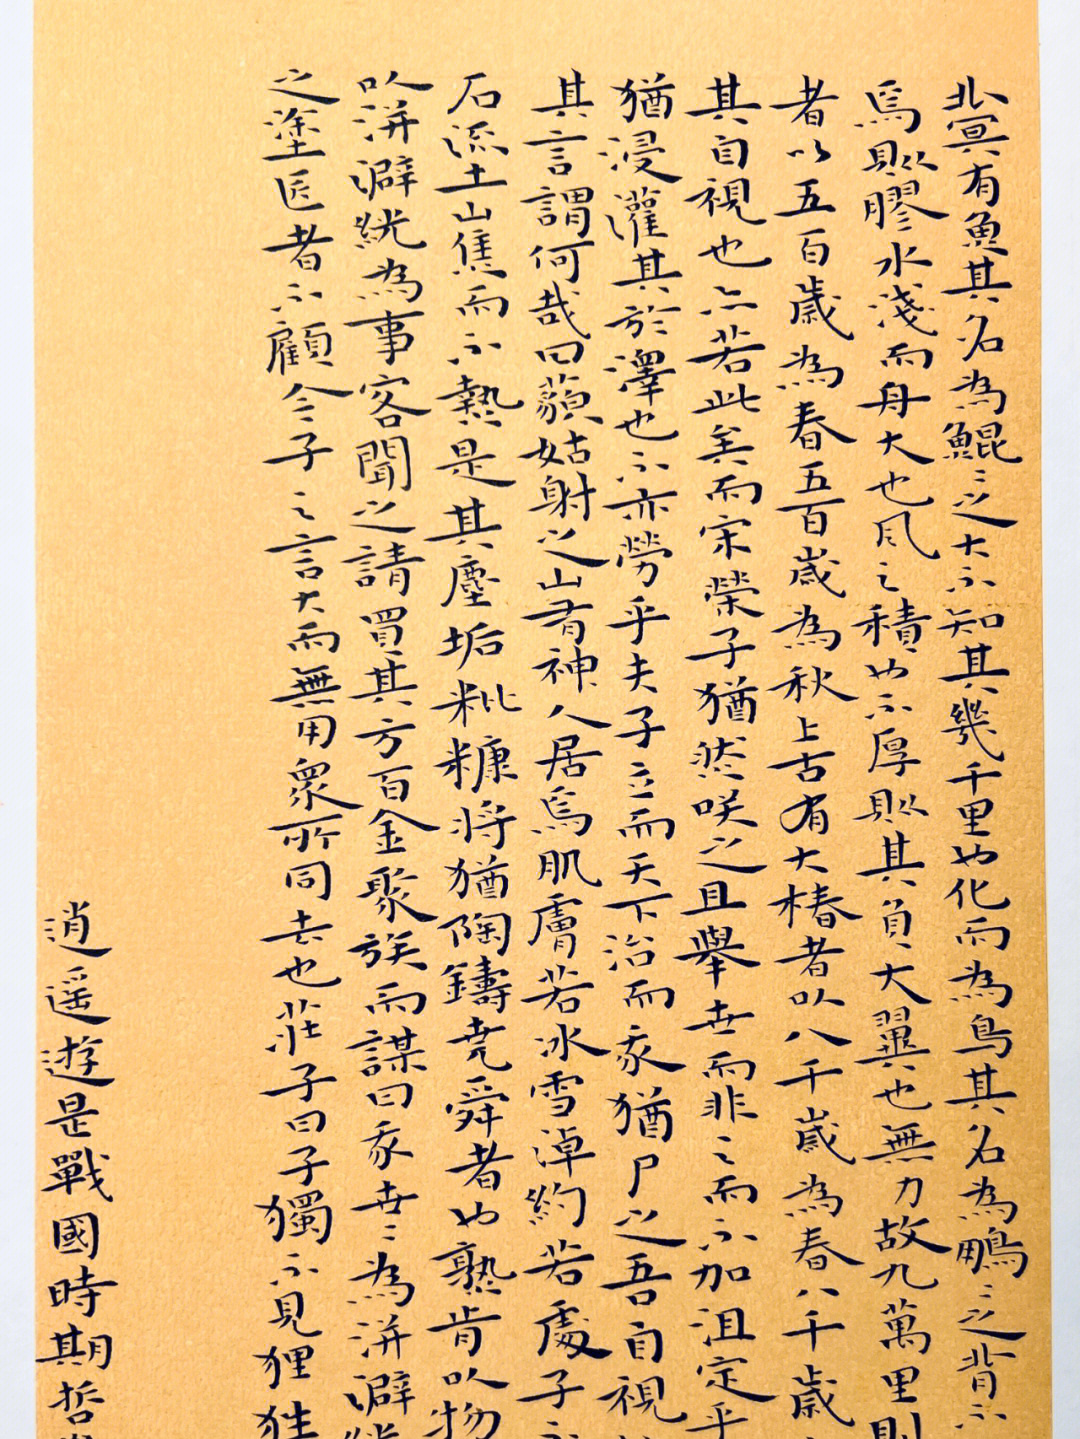 北冥有魚其名為鯤﹦之大不知其幾千里也化而為鳥其名為鵬﹦之背不
焉則膠水淺而舟大也風之積也不厚則其負大翼也無力故九萬里則
者以五百歲為春五百歲為秋上古有大椿者以八千歲為春八千歲
其自視也亦若此矣而宋榮子猶然咲之且舉世而非之而不加沮定乎
猶浸灌其於澤也不亦勞乎夫子立而天下治而我猶尸之吾自視
其言謂何哉曰藐姑射之山有神人居焉肌膚若冰雪淖約若處子
石流土山焦而不熱是其塵垢粃糠將猶陶鑄堯舜者也孰肯以物
以洴澼絖為事客聞之請買其方百金聚族而謀曰我世﹦為洴澼絖
之塗匠者不顧今子之言大而無用眾所同去也莊子曰子獨不見狸狌
逍遥遊是戰國時期哲